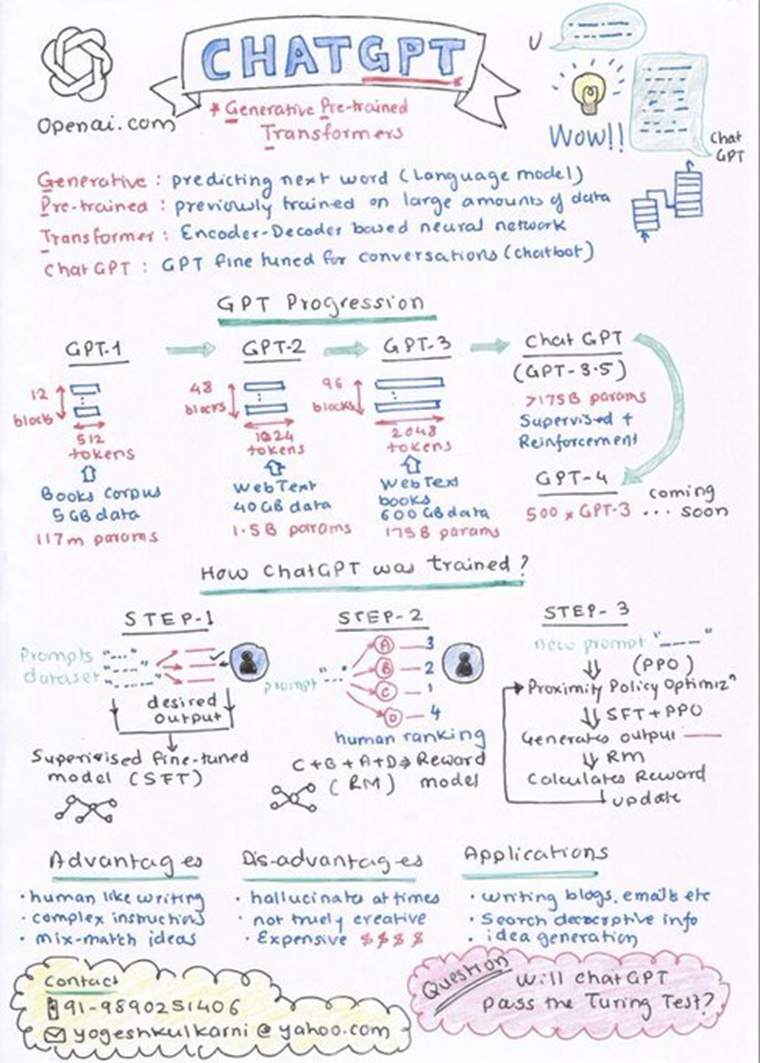 CHATGPT
Openai.com
* Generative Pre-trained
Transformers
U
WOW!!
Chat
GPT
Generative : predicting next word (Language model)
Pre-trained : previously trained on large amounts of data
Transformer : Encoder-Decoder based neural network
Chat GPT : GPT fine tuned for conversations (chatbot)
GPT Progression
GPT-1
12
blocks
512
tokens
Books Corpus
5GB data
117m params
GPT-2
48
blocks
1024
tokens
WebText
40GB data
1.5B params
GPT-3
96
blocks
2048
tokens
WebText
books
600GB data
175B params
Chat GPT
(GPT-3.5)
>175B params
Supervised +
Reinforcement
GPT-4
500 x GPT-3
coming
... soon
How ChatGPT was trained?
STEP-1
Prompts "---"
dataset "---"
desired
output
Supervised fine-tuned
model (SFT)
STEP-2
prompt "---"
A 3
B 2
C 1
D 4
human ranking
C+B+A+D => Reward
(RM) model
STEP-3
new prompt "----"
(PPO)
Proximity Policy Optimizⁿ
SFT+PPO
Generates output
RM
Calculates Reward
update
Advantages
• human like writing
• complex instructions
• mix-match ideas
Dis-advantages
• hallucinate at times
• not truely creative
• Expensive $ $ $ $
Applications
• writing blogs, emails etc
• Search descriptive info
• idea generation
Contact
91-9890251406
yogeshkulkarni@yahoo.com
Question
Will chatGPT
pass the Turing Test?